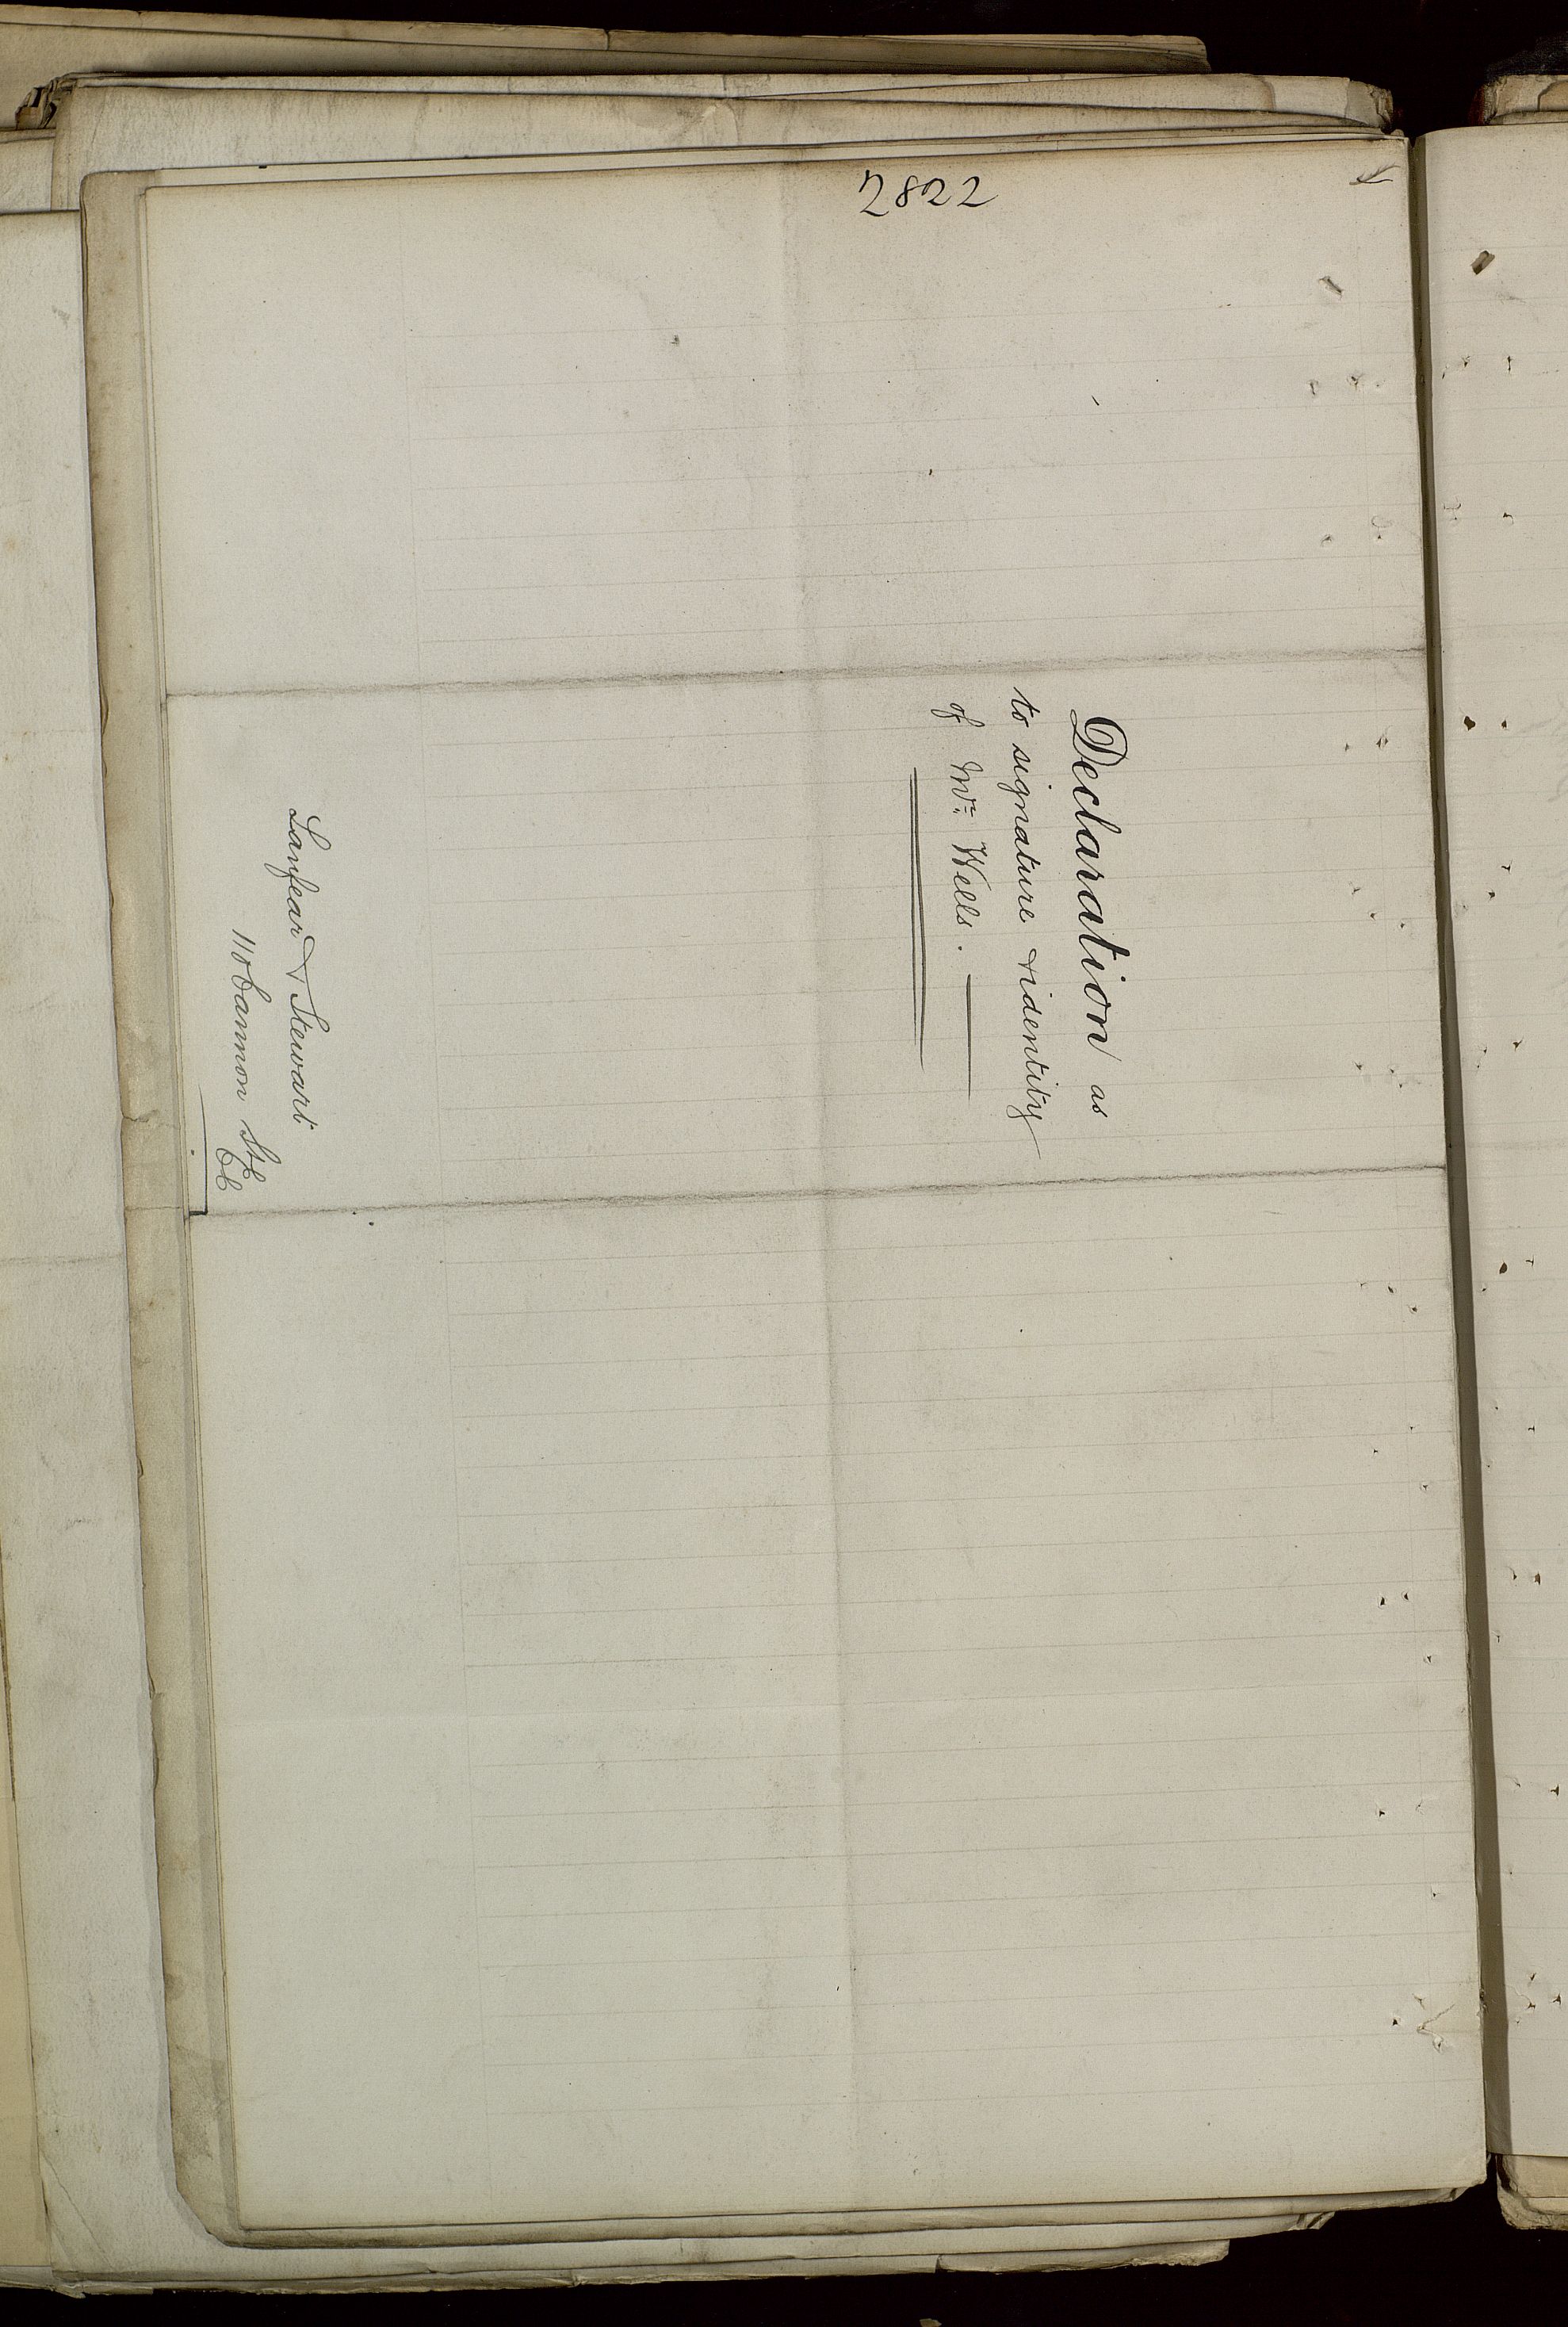 2822
Declaration as
to signature & identity
of Mr. Wells.
Lanfear & Stewart
110 Cannon St
EC